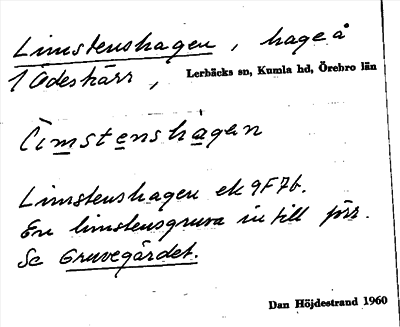 Limstenshagen, hage å
1 Ödeskärr, Lerbäcks sn, Kumla hd, Örebro län
limstenshagen
Limstenshagen ek 9F7b.
En limstensgruva in till förr.
Se Gruvegärdet.
Dan Höjdestrand 1960